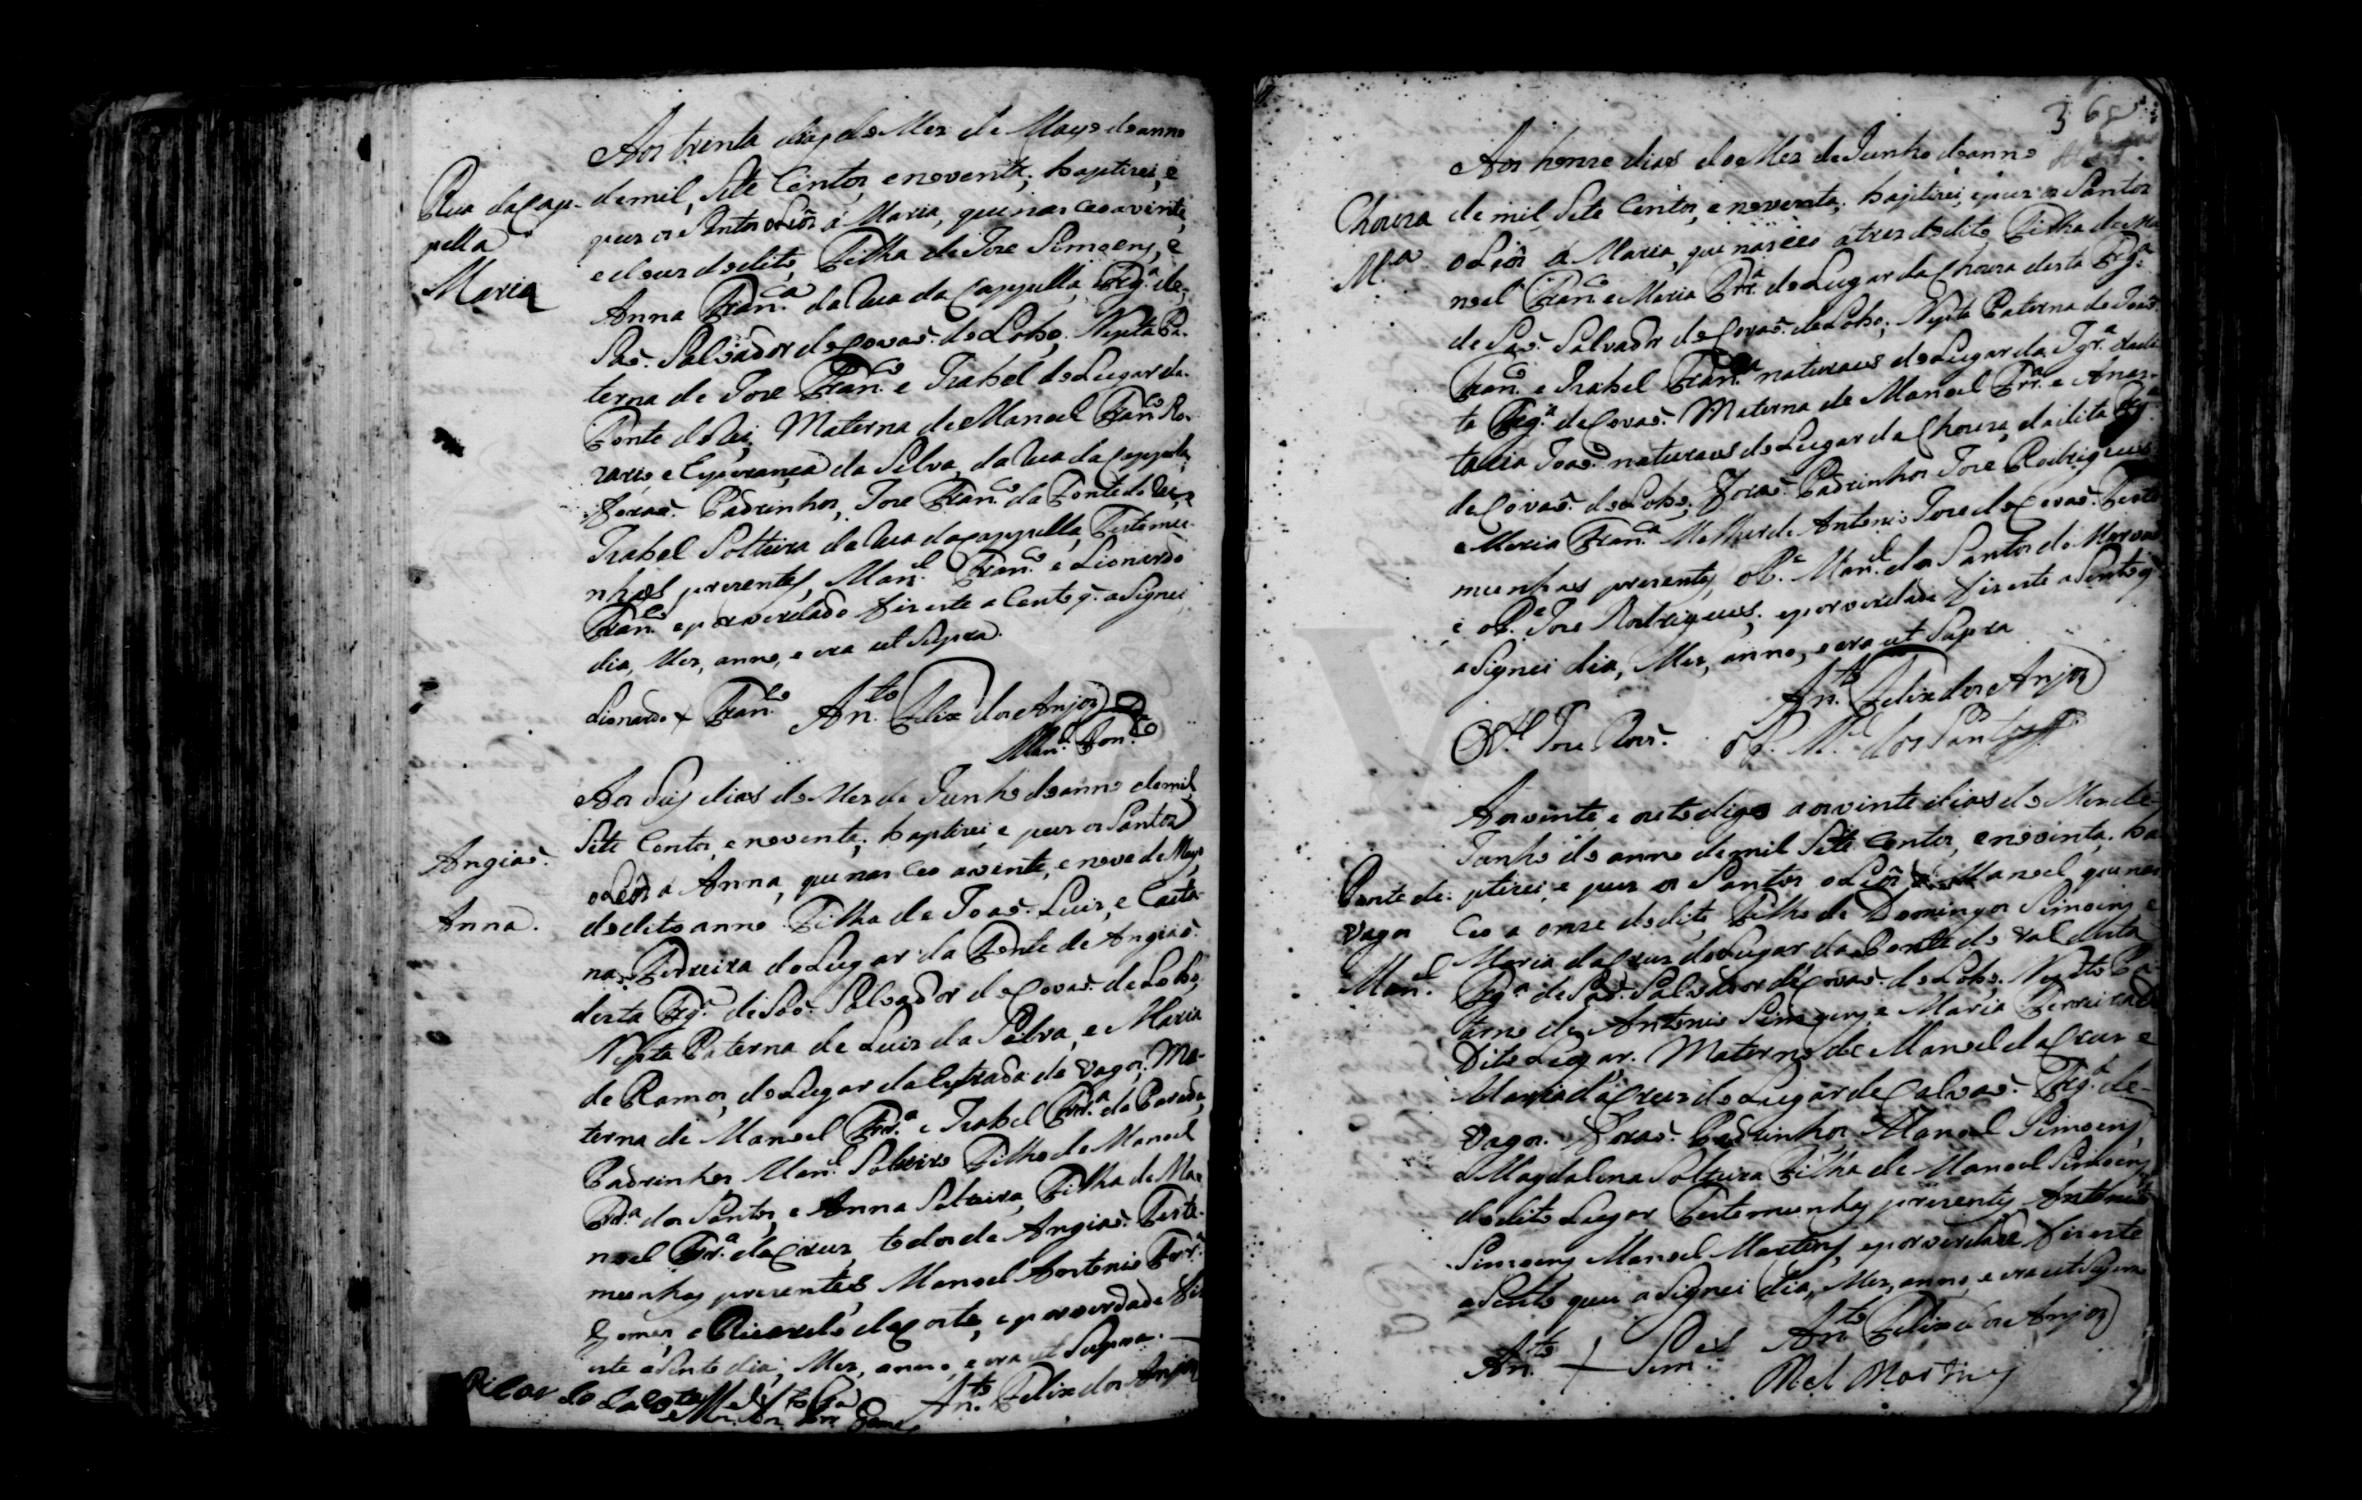 Aos trinta dias do Mes de Mayo do anno
Rua da Cap-
pella
Maria
de mil, Sete Centos, e noventa; baptizei, e
puz os Santos oLeõs á Maria, que nasceo a vinte,
e dous do dito, Filha de Joze Simoens, e
Anna Fran.ca da Rua da Cappella, Frg.a de,
Saõ. Salvador de Covaõ. do Lobo; Neyta Pa-
terna de Joze Fran.co e Izabel do Lugar da
Fonte do Rei; Materna de Manoel Fran.co Ro-
zario, e Esperança da Silva, da Rua da Cappella;
foraõ. Padrinhos, Joze Fran.co da Fonte do Rei, e
Izabel Solteira da Rua da Cappella, Testemu-
nhas prezentes, Man.el Fran.co e Lionardo
Fran.co e por verdade fiz este aCento q. aSignei
dia, Mes, anno, e era ut Supra.
Lionardo + Fran.co An.to Felix dos Anjos
Man.el Fran.co
Aos Seis dias do Mes de Junho do anno de mil
Angiaõ.
Anna.
Sete Centos, e noventa; baptizei, e puz os Santos
oLeõs á Anna, que nasceo a vinte, e nove de Mayo
do dito anno Filha de Joaõ. Luiz, e Caeta-
na Ferreira do Lugar da Fonte de Angiaõ.
desta Frg.a de Saõ. Salvador de Covaõ. do Lobo,
Neyta Paterna de Luiz da Silva, e Maria
de Ramos, do Lugar da Estrada de Vagos; Ma-
terna de Manoel Frr.a e Izabel Frr.a da Parada,
Padrinhos Man.el Solteiro Filho de Manoel
Frr.a dos Santos, e Anna Solteira, Filha de Ma-
noel Frr.a da Cruz, todos de Angiaõ. Teste-
munhas prezentes Manoel Antonio Frr.a
Gomes, e Ricardo da Costa, e por verdade fiz
este aSento dia, Mes, anno, e era ut Supra.
Ricardo da Costa An.to Felix dos Anjos
365
Aos honze dias do Mes de Junho do anno
Chouza
M.a
de mil, Sete Centos, e noventa; baptizei, e puz os Santos
oLeõs á Maria, que nasceo a tres do dito Filha de Ma-
noel Fran.co e Maria Frr.a do Lugar da Chouza desta Frg.a
de Saõ. Salvador de Covaõ. do Lobo; Neyta Paterna de Joaõ.
Fran.co e Izabel Fran.ca naturaes do Lugar da Igr.a dadi-
ta Frg.a de Covaõ. Materna de Manoel Frr.a e Anas-
tacia Joaõ. naturaes do Lugar da Chouza, da dita Frg.a
de Covaõ. do Lobo; foraõ. Padrinhos Joze Rodrigues
e Maria Fran.ca Molher de Antonio Joze de Covaõ. Teste-
munhas prezentes, oP.e Man.el dos Santos do
e oP.e Joze Rodrigues; e por verdade fiz este aSento q.
aSignei dia, Mes, anno, e era ut Supra
An.to Felix dos Anjos
Joze Roiz. oP. M.el dos Santos
Aos vinte e oito digo aos vinte dias do Mes de
Junho do anno de mil Sete Centos, e novinta; ba-
Ponte de.
Vagos
Man.el
ptizei, e puz os Santos oLeõs á Manoel, que nas-
ceo a onze do dito, Filho de Domingos Simoens e
Maria da Cruz do Lugar da Ponte do Val desta
Frg.a de Saõ. Salvador de Covaõ. do Lobo. Neyto Pa-
terno de Antonio Simoens, e Maria Ferreira do
Dito Lugar. Materno de Manoel da Cruz e
Maria da Cruz do Lugar de Calvaõ. Frg.a de-
Vagos. foraõ. Padrinhos Manoel Simoens,
e Magdalena Solteira Filha de Manoel Simoens
do dito Lugar Testemunhas prezentes Antonio
Simoens Manoel Martins, e por verdade fiz este
aSento que aSignei dia, Mes, anno, e era ut Supra
An.to + Sim.es An.to Felix dos Anjos
Mel Martins